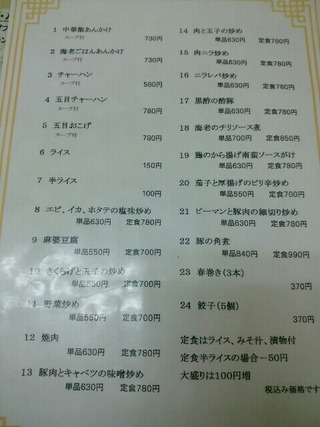 1 中華飯あんかけ
スープ付 730円
2 海老ごはんあんかけ
スープ付 730円
3 チャーハン
スープ付 580円
4 五目チャーハン
スープ付 780円
5 五目おこげ
スープ付 780円
6 ライス
150円
7 半ライス
100円
8 エビ、イカ、ホタテの塩味炒め
単品630円 定食780円
9 麻婆豆腐
単品550円 定食700円
10 きくらげと玉子の炒め
単品550円 定食700円
11 野菜炒め
単品550円 定食700円
12 焼肉
単品630円 定食780円
13 豚肉とキャベツの味噌炒め
単品630円 定食780円
14 肉と玉子の炒め
単品630円 定食780円
15 肉ニラ炒め
単品630円 定食780円
16 ニラレバ炒め
単品630円 定食780円
17 黒酢の酢豚
単品630円 定食780円
18 海老のチリソース煮
単品700円 定食850円
19 鶏のから揚げ南蛮ソースがけ
単品630円 定食780円
20 茄子と厚揚げのピリ辛炒め
単品550円 定食700円
21 ピーマンと豚肉の細切り炒め
単品630円 定食780円
22 豚の角煮
単品840円 定食990円
23 春巻き(3本)
370円
24 餃子(5個)
370円
定食はライス、みそ汁、漬物付
定食半ライスの場合－50円
大盛りは100円増
税込み価格です